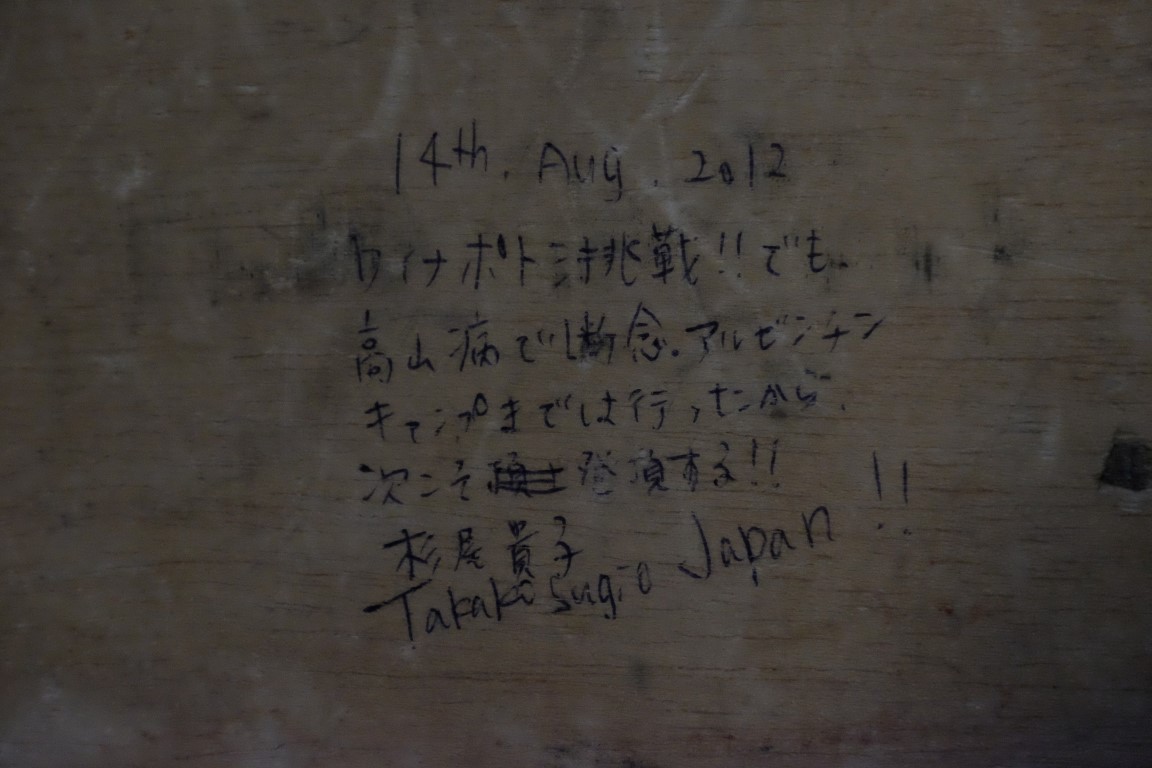 14th. Aug. 2012
ワイナポトシ挑戦!!でも
高山病で断念.アルゼンチン
キャンプまでは行ったから.
次こそ 登頂する!!
杉尾貴子
Takako Sugio Japan !!